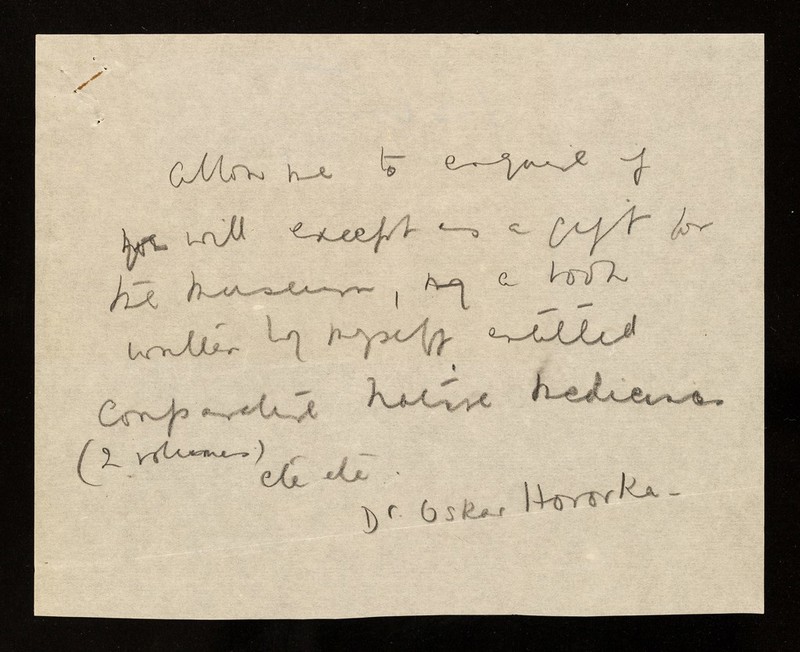 Allow me to enquire if
you will except as a gift for
the museum, a book
written by myself entitled
Comparative Native Medicines
(2 volumes)
etc etc.
Dr. Oskar Hovorka -